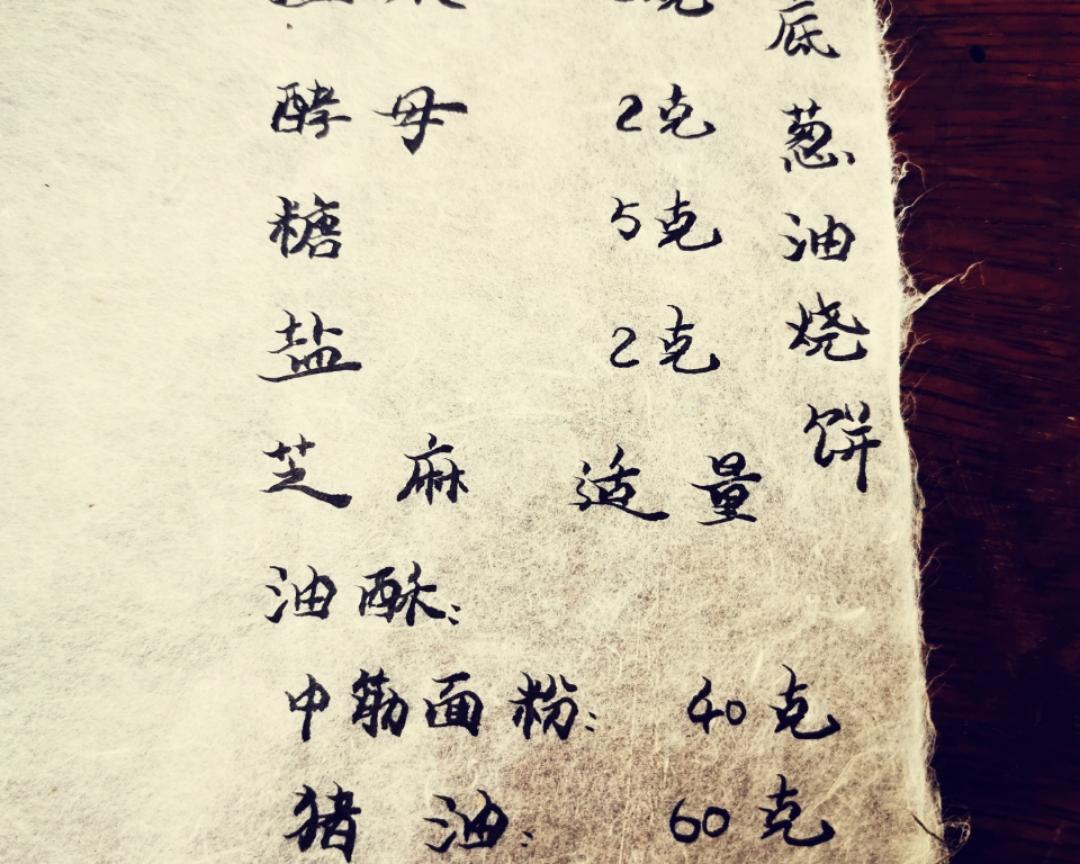 底葱油烧饼
酵母 2克
糖 5克
盐 2克
芝麻 适量
油酥：
中筋面粉： 40克
猪油： 60克